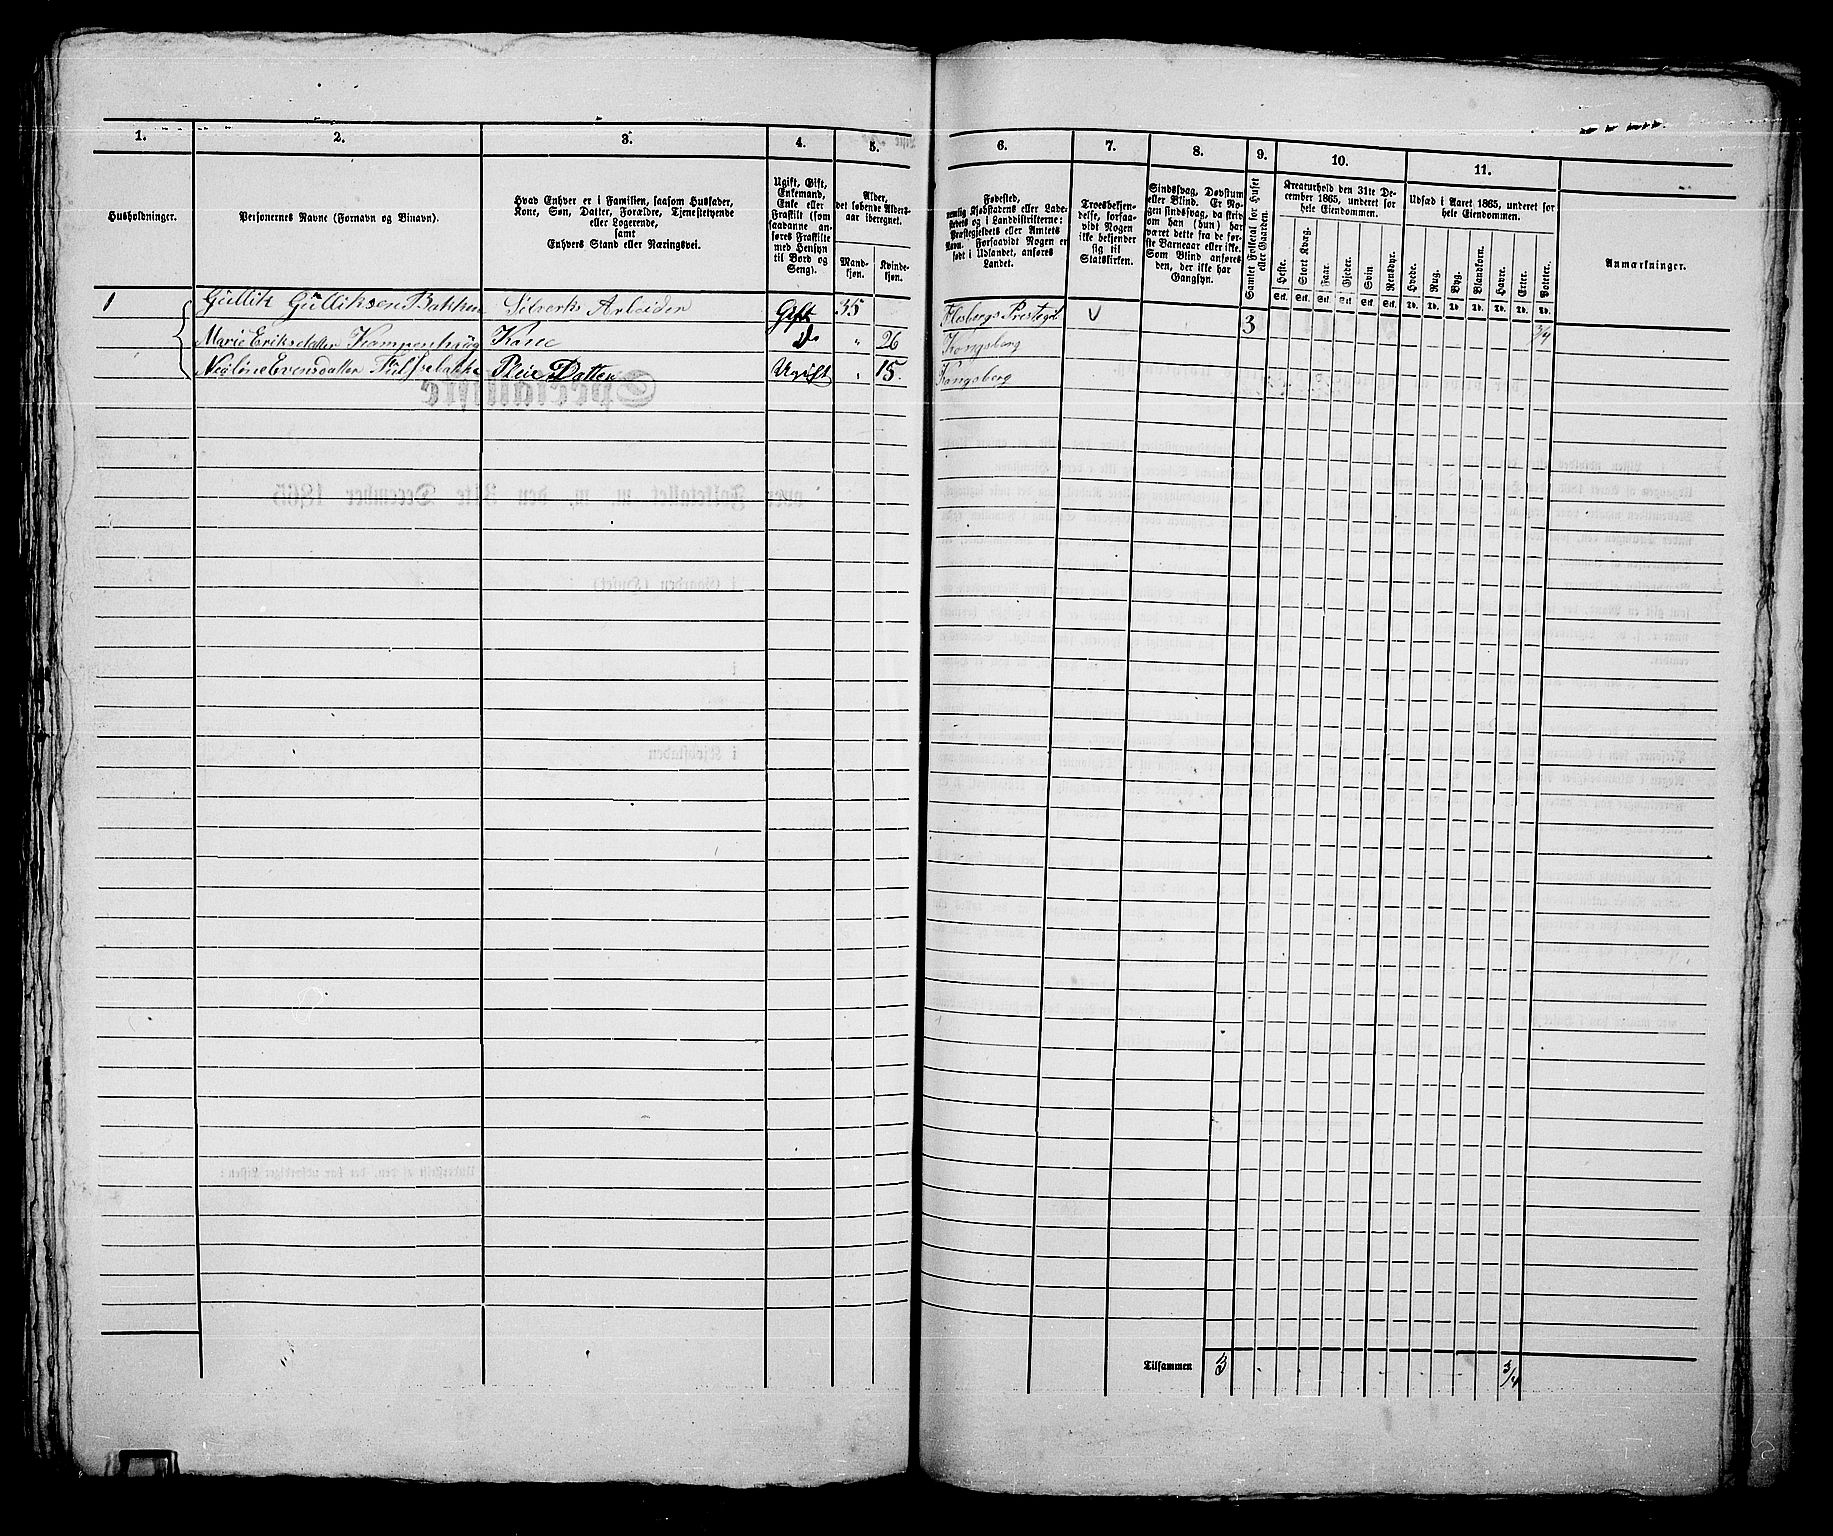 1.
2.
3.
4.
5.
6.
7.
8.
9.
10.
11.
Husholdninger.
Personernes Navne (Fornavn og Binavn).
Hvad Enhver er i Familien, saasom Husfader,
Kone, Søn, Datter, Forældre, Tjenestetyende
eller Logerende,
samt
Enhvers Stand eller Næringsvei.
Ugift, Gift,
Enkemand,
Enke eller
Fraskilt (som
saadanne an-
føres Fraskilte
med Hensyn
til Bord og
Seng).
Alder,
det løbende Alders-
aar iberegnet.
Mand-
kjøn.
Kvinde-
kjøn.
Fødested,
nemlig Kjøbstadens eller Lade-
stedets og i Landdistrikterne:
Præstegjeldets eller Amtets
Navn. Forsaavidt Nogen er
født i Udlandet, anføres
Landet.
Troesbekjen-
delse, forsaa-
vidt Nogen
ikke bekjender
sig til
Statskirken.
Sindssvag, Døvstum
eller Blind. Er No-
gen sindssvag, da skriv
om han (hun) har
været dette fra de før-
ste Barneaar eller ikke.
Som Blind anføres
den, der ikke har
Gangsyn.
Samlet Folketal for Huset
eller Gaarden.
Kreaturhold den 31te De-
cember 1865, underet for
hele Eiendommen.
Heste.
Stort Kvæg.
Faar.
Gjeder.
Svin
Rensdyr.
Stk. Stk. Stk. Stk. Stk. Stk.
Udsæd i Aaret 1865, underet for
hele Eiendommen.
Hvede.
Rug.
Byg.
Blandkorn.
Havre.
Erter.
Poteter.
Td. Td. Td. Td. Td. Td. Td.
Anmærkninger.
1 Gullik Gulliksen Bakken Sölverks Arbeider Gift 35 Flesbergs Prestegd 3 3/4
Marie Eriksdatter Kampenhaug Kone Do " 26 Kongsberg
Evensdatter Pleie Datter Ugift " 15. Kongsberg
Tilsammen 3 3/4